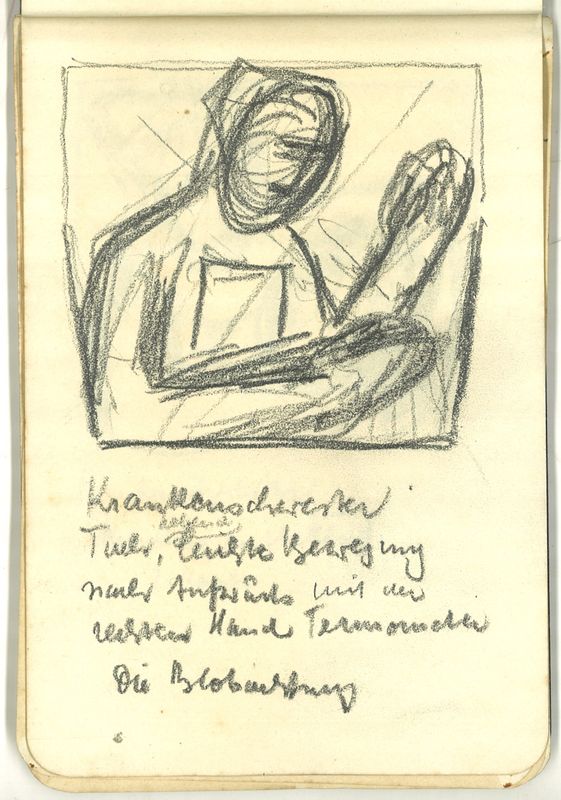 Krankenschwester
Tuch, leichte Bewegung
nach Aufwärts mit der
rechten Hand Termometer
Die Beobachtung